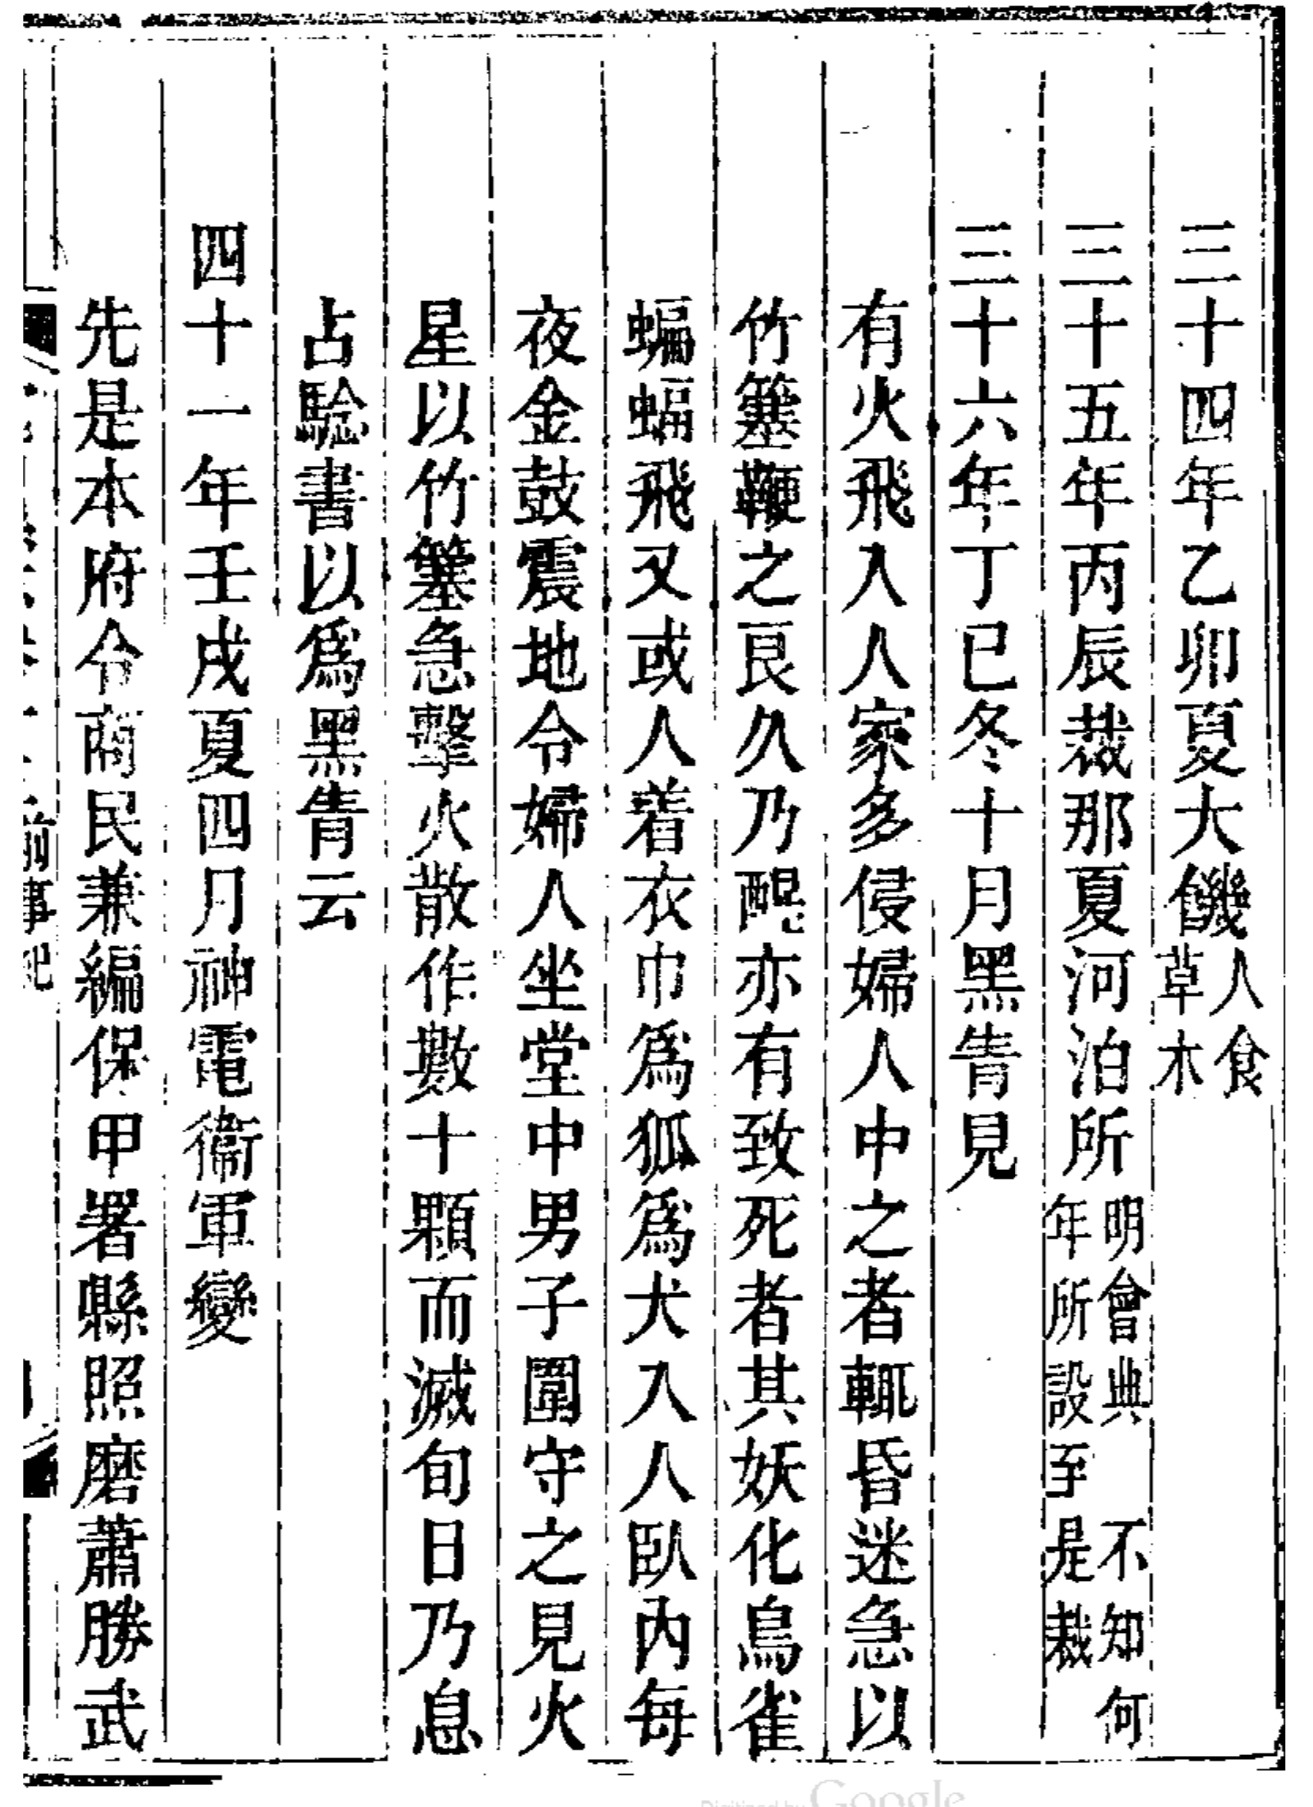 三十四年乙卯夏大饑人食草木
三十五年丙辰裁那夏河泊所明會典不知何年所設至是裁
三十六年丁巳冬十月黑眚見
有火飛入人家多侵婦人中之者輒昏迷急以
竹籊鞭之良久乃醒亦有致死者其妖化鳥雀
蝙蝠飛又或人着衣巾爲狐爲犬入人臥內每
夜金鼓震地令婦人坐堂中男子圍守之見火
星以竹籊急擊火散作數十顆而滅旬日乃息
占驗書以爲黑眚云
四十一年壬戌夏四月神電衞軍變
先是本府令商民兼編保甲署縣照磨蕭勝武
前事紀
Digitized by Google